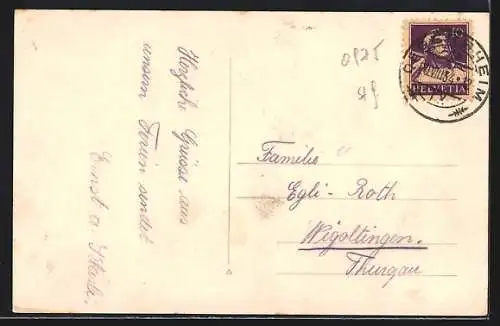 Herzliche Grüsse aus
unsern Ferien sendet
Ernst a.
10
HELVETIA
HEIM
0925
Familie
Egli-Roth
Wigoltingen.
Thurgau